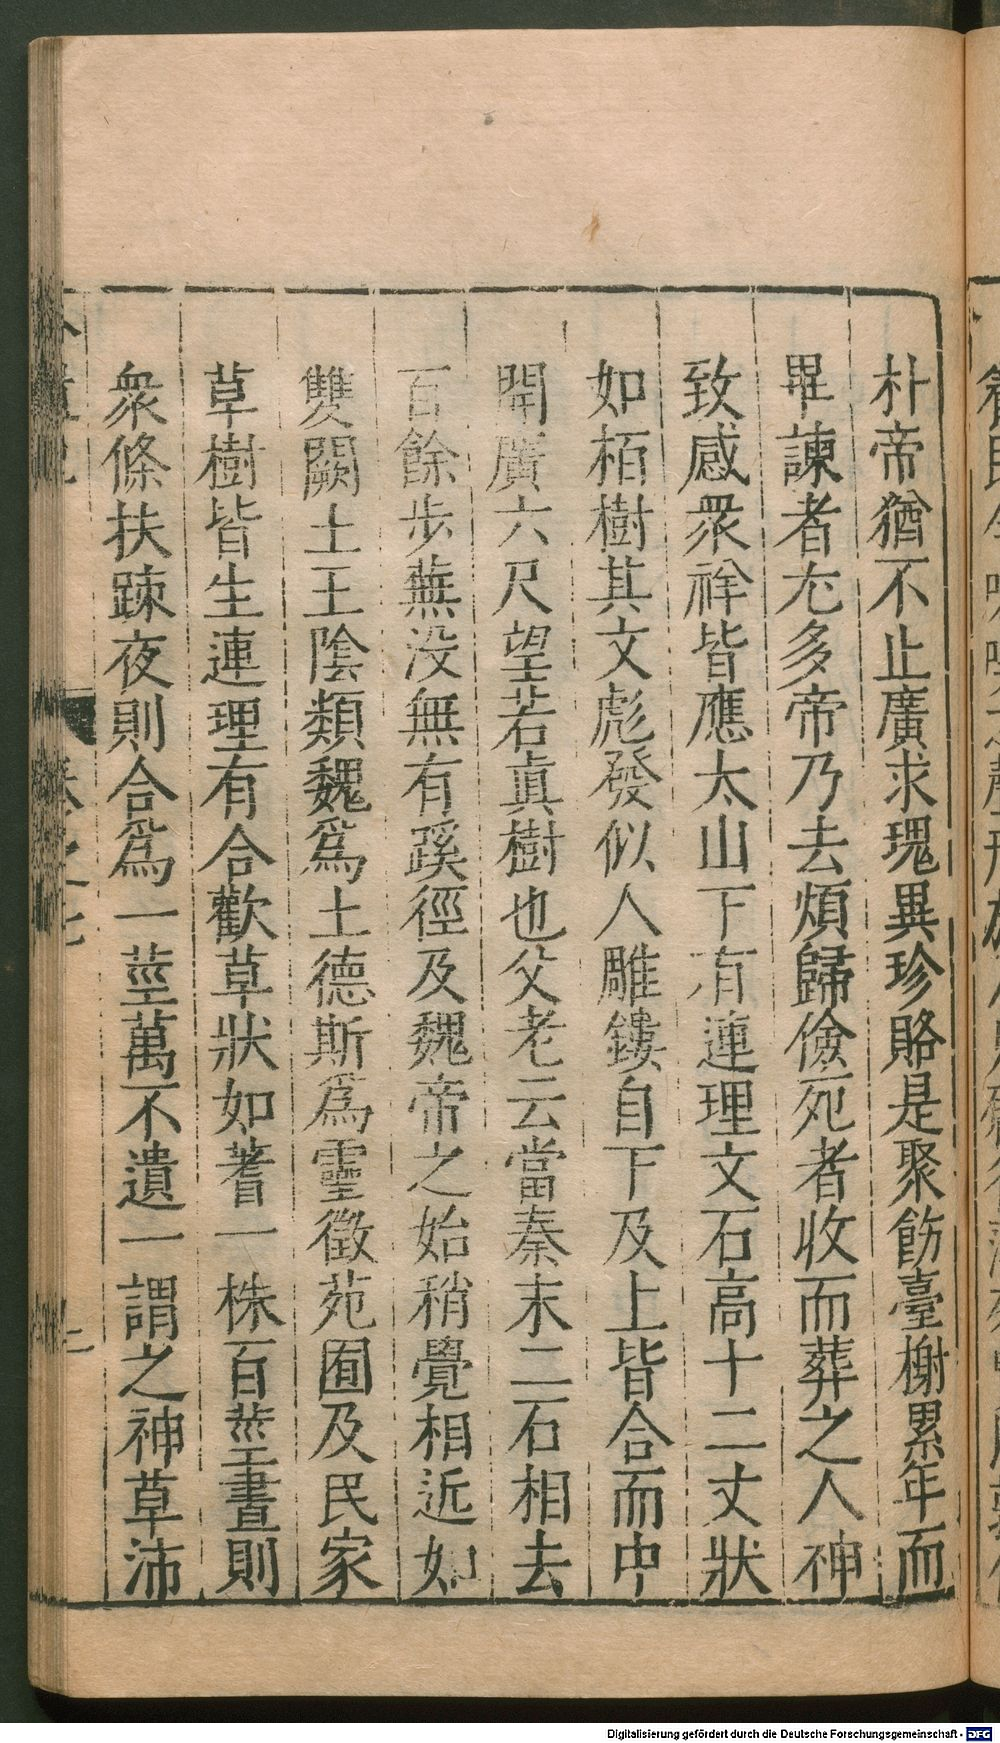 朴帝猶不止廣求瑰異珍賂是聚飭臺榭累年而
畢諫者尤多帝乃去煩歸儉死者收而葬之人神
致感衆祥皆應太山下有連理文石高十二丈狀
如栢樹其文彪發似人雕鏤自下及上皆合而中
開廣六尺望若眞樹也父老云當秦末二石相去
百餘步蕪没無有蹊徑及魏帝之始稍覺相近如
雙闕土王陰類魏爲土德斯爲靈徵苑囿及民家
草樹皆生連理有合歡草狀如蓍一株百莖晝則
衆條扶踈夜則合爲一莖萬不遺一謂之神草沛
卷之七
Digitalisierung gefördert durch die Deutsche Forschungsgemeinschaft - DFG